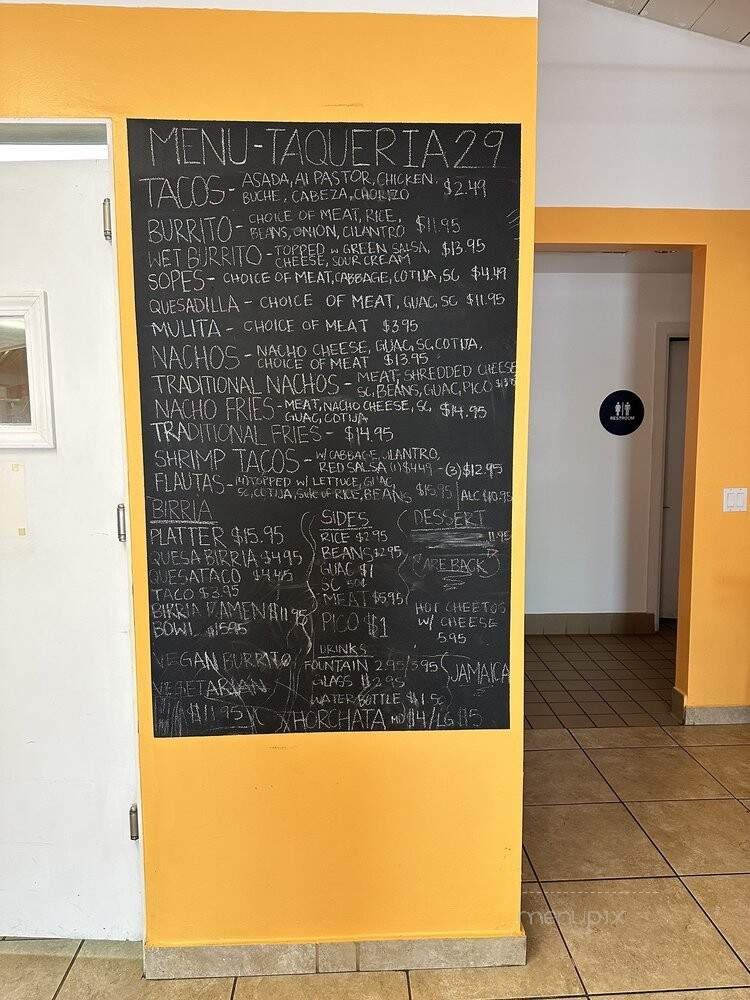 MENU-TAQUERIA 29
TACOS - ASADA, Al PASTOR, CHICKEN, $2.49
BUCHE, CABEZA, CHORIZO
BURRITO - CHOICE OF MEAT, RICE, $11.95
BEANS, ONION, CILANTRO
WET BURRITO - TOPPED w GREEN SALSA, $13.95
CHEESE, SOUR CREAM
SOPES - CHOICE OF MEAT, CABBAGE, COTIJA, SC $4.49
QUESADILLA - CHOICE OF MEAT, GUAC, SC $11.95
MULITA - CHOICE OF MEAT $3.95
NACHOS - NACHO CHEESE, GUAC, SC, COTIJA,
CHOICE OF MEAT $13.95
TRADITIONAL NACHOS - MEAT, SHREDDED CHEESE
SC, BEANS, GUAC, PICO
NACHO FRIES - MEAT, NACHO CHEESE, SC, $14.95
GUAC, COTIJA
TRADITIONAL FRIES - $14.95
SHRIMP TACOS - W/ CABBAGE, CILANTRO,
RED SALSA (1) $4.49 - (3) $12.95
FLAUTAS - (4) TOPPED W/ LETTUCE, GUAC,
SC, COTIJA, Side of RICE, BEANS $15.95 ALC $10.95
BIRRIA
PLATTER $15.95
QUESA BIRRIA $4.95
QUESATACO $4.45
TACO $3.95
BIRRIA RAMEN $11.95
BOWL $15.95
VEGAN BURRITO/
VEGETARIAN
$11.95
SIDES
RICE $2.95
BEANS $2.95
GUAC $1
SC 50¢
MEAT $5.95
PICO $1
DRINKS
FOUNTAIN 2.95/3.95
GLASS $2.95
WATER BOTTLE $1.50
HORCHATA MD $4/LG $5
DESSERT
11.95
ARE BACK
HOT CHEETOS
W/ CHEESE
5.95
JAMAICA
RESTROOM
menupix